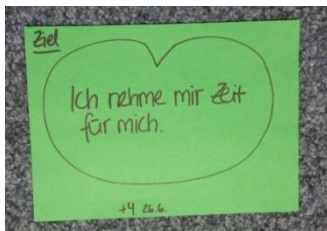 Ziel
Ich nehme mir Zeit
für mich.
+4 26.6.